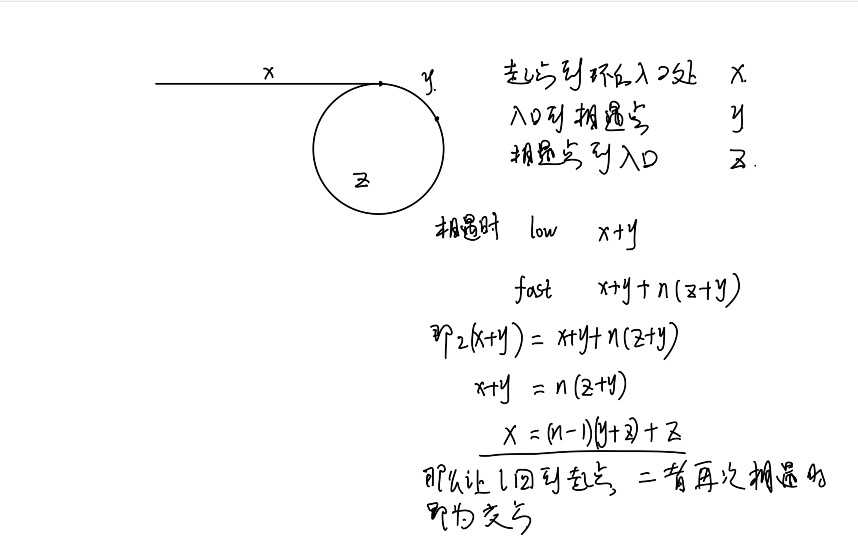 x
y.
z
起点到环的入口处 x.
入口到相遇点 y
相遇点到入口 z.
相遇时 low x+y
fast x+y+n(z+y)
即2(x+y)=x+y+n(z+y)
x+y=n(z+y)
x=(n-1)(y+z)+z
那么让l回到起点,二者再次相遇时
即为交点